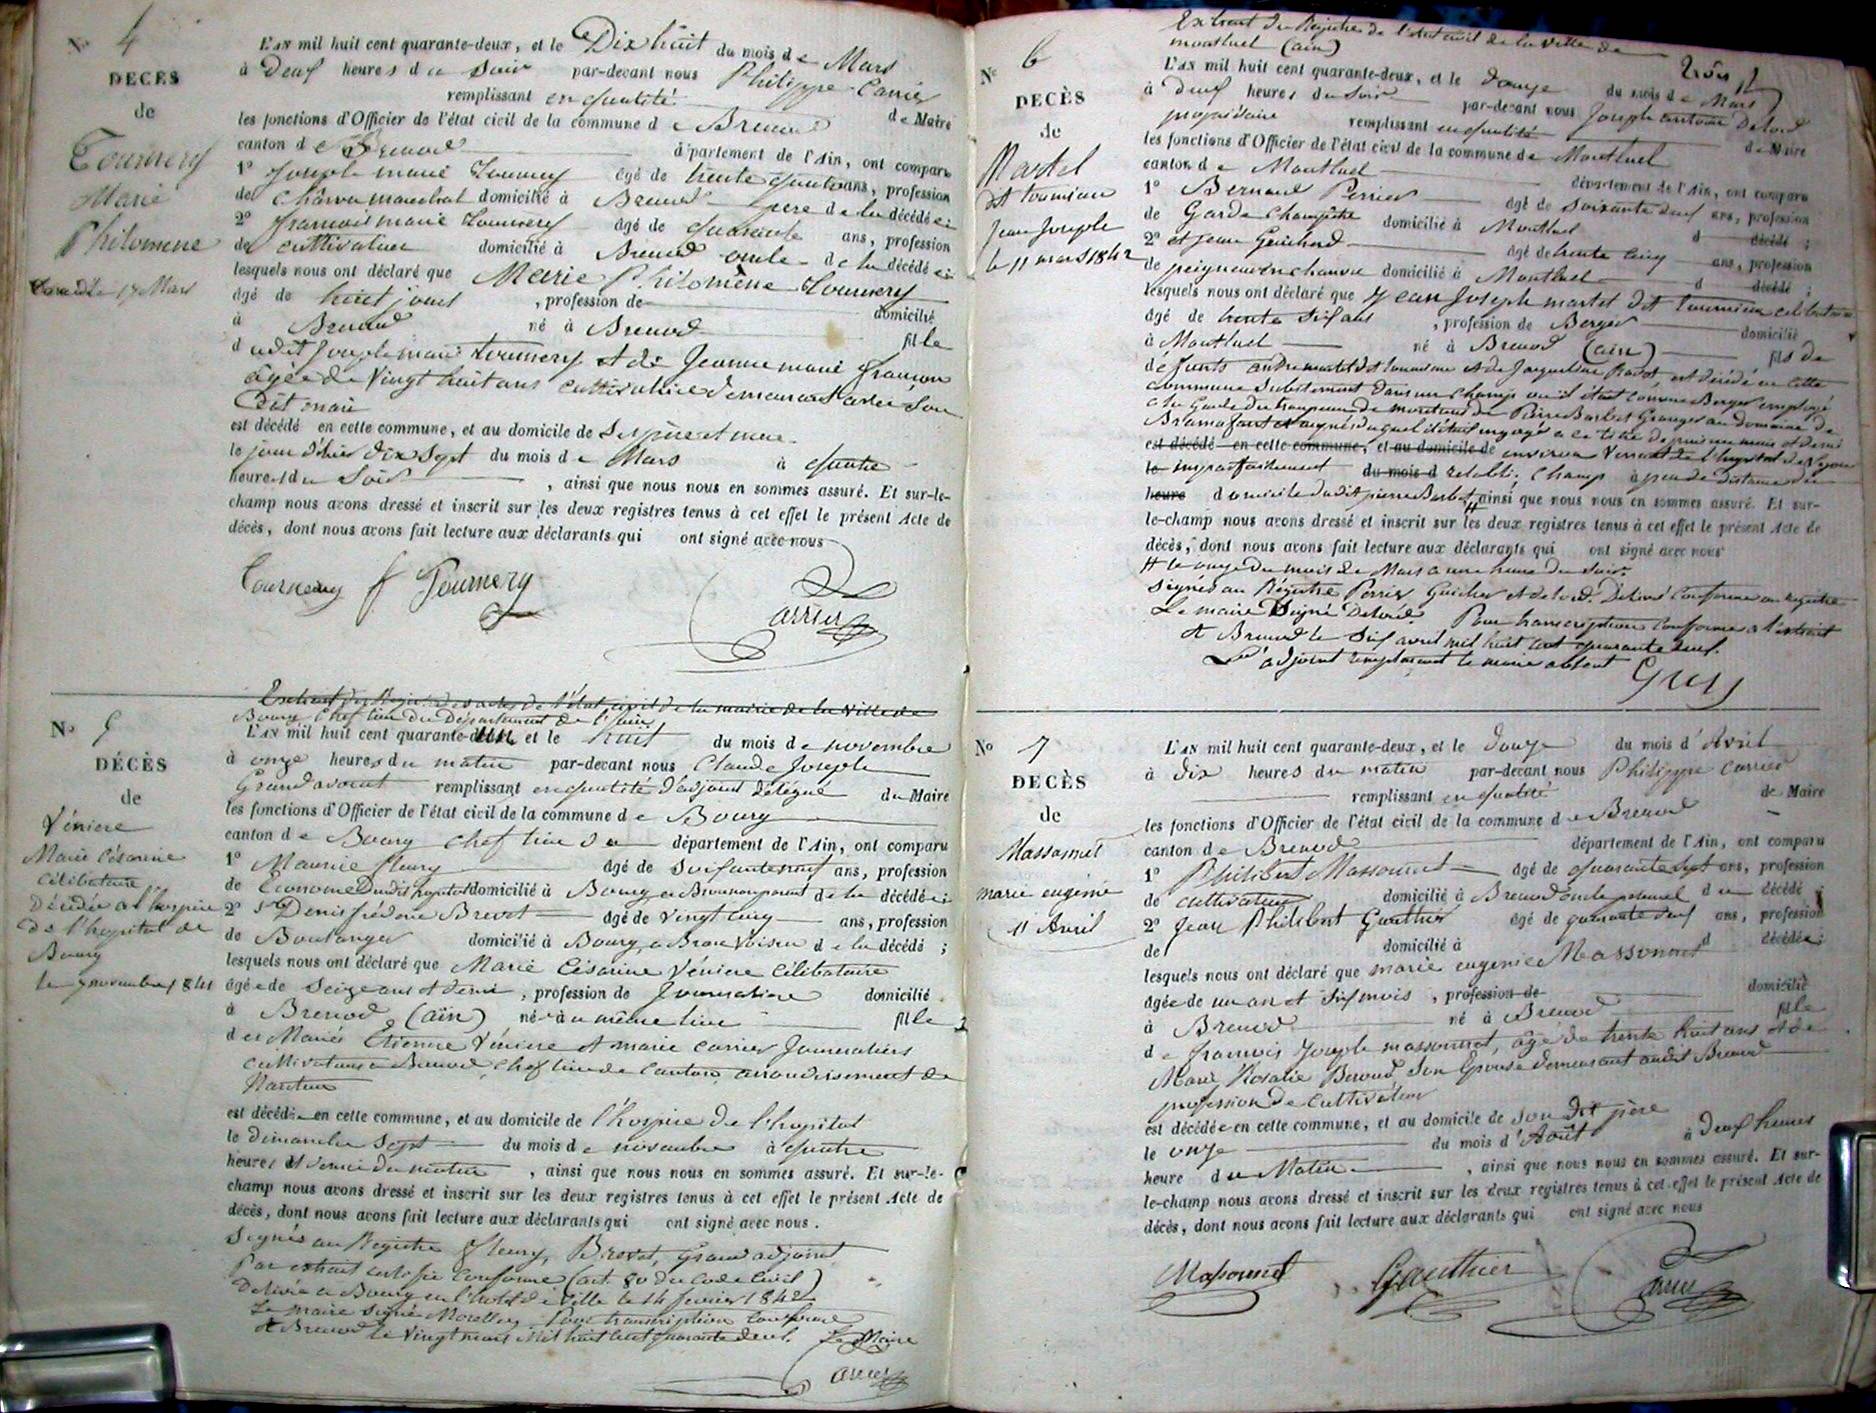 N.o 4
DÉCÈS
de
Tournery
Marie
Philomène
17 Mars
L'AN mil huit cent quarante-deux, et le Dix huit du mois de Mars
à Deux heures du soir par-devant nous Philippe Carrier
remplissant en qualité de Maire
les fonctions d'Officier de l'état civil de la commune de Brenod
canton de Brenod département de l'Ain, ont comparu
1o Joseph marie Tournery âgé de trente quatre ans, profession
de domicilié à Brenod père de la décédée
2o françois marie Tournery âgé de quarante ans, profession
de cultivateur domicilié à Brenod oncle de la décédée
lesquels nous ont déclaré que Marie Philomène Tournery
âgé de huit jours, profession de domicilié
à Brenod né à Brenod fille
dudit Joseph marie Tournery et de Jeanne marie françon
âgée de Vingt huit ans cultivatrice demeurant avec son
Dit mari
est décédé en cette commune, et au domicile de ses père et mère
le jour d'hier dix sept du mois de Mars à quatre
heures du soir, ainsi que nous nous en sommes assuré. Et sur-le-
champ nous avons dressé et inscrit sur les deux registres tenus à cet effet le présent Acte de
décès, dont nous avons fait lecture aux déclarants qui ont signé avec nous
Tournery Tournery
Carrier
N.o 5
DÉCÈS
de
Vénière
Marie Césarine
célibataire
Décédée à l'hospice
de l'hopital de
Bourg
le 7 novembre 1841
Extrait du Registre des actes de l'état civil de la mairie de la Ville de
Bourg chef lieu du Département de l'Ain
L'AN mil huit cent quarante-un et le huit du mois de novembre
à onze heures du matin par-devant nous Claude Joseph
Grand avocat remplissant en qualité d'adjoint délégué du Maire
les fonctions d'Officier de l'état civil de la commune de Bourg
canton de Bourg chef lieu du département de l'Ain, ont comparu
1o Maurice fleury âgé de soixante neuf ans, profession
de Econome dudit hopital domicilié à Bourg de la décédée
2o Denis frédéric Brevet âgé de vingt cinq ans, profession
de Boulanger domicilié à Bourg voisin de la décédé ;
lesquels nous ont déclaré que Marie Césarine Vénière célibataire
âgée de seize ans et demi, profession de Journalière domicilié
à Brenod (ain) née au même lieu fille
des Mariés Etienne Vénière et marie carrier Journaliers
cultivateurs à Brenod, chef lieu de Canton arrondissement de
Nantua
est décédée en cette commune, et au domicile de l'hospice de l'hopital
le dimanche sept du mois de novembre à quatre
heures et demie du matin, ainsi que nous nous en sommes assuré. Et sur-le-
champ nous avons dressé et inscrit sur les deux registres tenus à cet effet le présent Acte de
décès, dont nous avons fait lecture aux déclarants qui ont signé avec nous.
Signés au Registre fleury, Brevet, Grand adjoint
Par extrait certifié conforme (art. 80 du Code Civil)
Délivré à Bourg en l'hotel de Ville le 14 fevrier 1842
Le maire signé Morellet. Pour transcription conforme
A Brenod le Vingt mars Mil huit cent quarante deux. Le Maire
Carrier
No 6
DÉCÈS
de
Martel
dit tournian
Jean Joseph
le 11 mars 1842
Extrait du Registre de l'état civil de la Ville de
montluel (ain)
L'AN mil huit cent quarante-deux, et le douze du mois de Mars
à Deux heures du soir par-devant nous Joseph antoine Delord
propriétaire remplissant en qualité de Maire
les fonctions d'Officier de l'état civil de la commune de Montluel
canton de Montluel département de l'Ain, ont comparu
1o Bernard Perrier âgé de soixante deux ans, profession
de Garde Champêtre domicilié à Montluel d décédé ;
2o et jean Guichard âgé de trente cinq ans, profession
de peigneur de chanvre domicilié à Montluel d décédé ;
lesquels nous ont déclaré que Jean Joseph martel dit tournian célibataire
âgé de trente six ans, profession de Berger domicilié
à Montluel né à Brenod (ain) fils de
défunts andré martel dit tournian et de Jacqueline, est décédé en cette
commune subitement dans un champ où il était comme Berger employé
à la Garde du troupeau de moutons de Pierre Barbet Granger au domaine de
Bramafant auquel il était engagé à ce titre depuis un mois et demi
est décédé en cette commune, et au domicile de
le imparfaitement du mois d retabli ; champ à peu de distance du
heure domicile dudit pierre Barbet ainsi que nous nous en sommes assuré. Et sur-
le-champ nous avons dressé et inscrit sur les deux registres tenus à cet effet le présent Acte de
décès, dont nous avons fait lecture aux déclarants qui ont signé avec nous
# le onze du mois de Mars à une heure du soir.
Signés au Régistre Perrier Guichard et delord. Délivré conforme au registre
Le maire Signé Delord. Pour transcription conforme à l'extrait
A Brenod le six avril mil huit cent quarante deux.
L'adjoint remplaçant le maire absent
Guy
No 7
DÉCÈS
de
Massonnet
marie eugénie
11 Avril
L'AN mil huit cent quarante-deux, et le douze du mois d'Avril
à dix heures du matin par-devant nous Philippe Carrier
remplissant en qualité de Maire
les fonctions d'Officier de l'état civil de la commune de Brenod
canton de Brenod département de l'Ain, ont comparu
1o Philibert Massonnet âgé de quarante sept ans, profession
de cultivateur domicilié à Brenod oncle paternel du décédé ;
2o Jean Philibert Gauthier âgé de quarante deux ans, profession
de domicilié à d décédée ;
lesquels nous ont déclaré que marie eugénie Massonnet
âgée de un an et six mois, profession de domicilié
à Brenod né à Brenod fille
de françois Joseph massonnet, âgé de trente huit ans et de
Marie Rosalie Beroud Son Epouse demeurant audit Brenod
profession de cultivateur
est décédée en cette commune, et au domicile de son dit père
le onze du mois d'Août à deux heures
heure du Matin, ainsi que nous nous en sommes assuré. Et sur-
le-champ nous avons dressé et inscrit sur les deux registres tenus à cet effet le présent Acte de
décès, dont nous avons fait lecture aux déclarants qui ont signé avec nous
Massonnet Gauthier Carrier